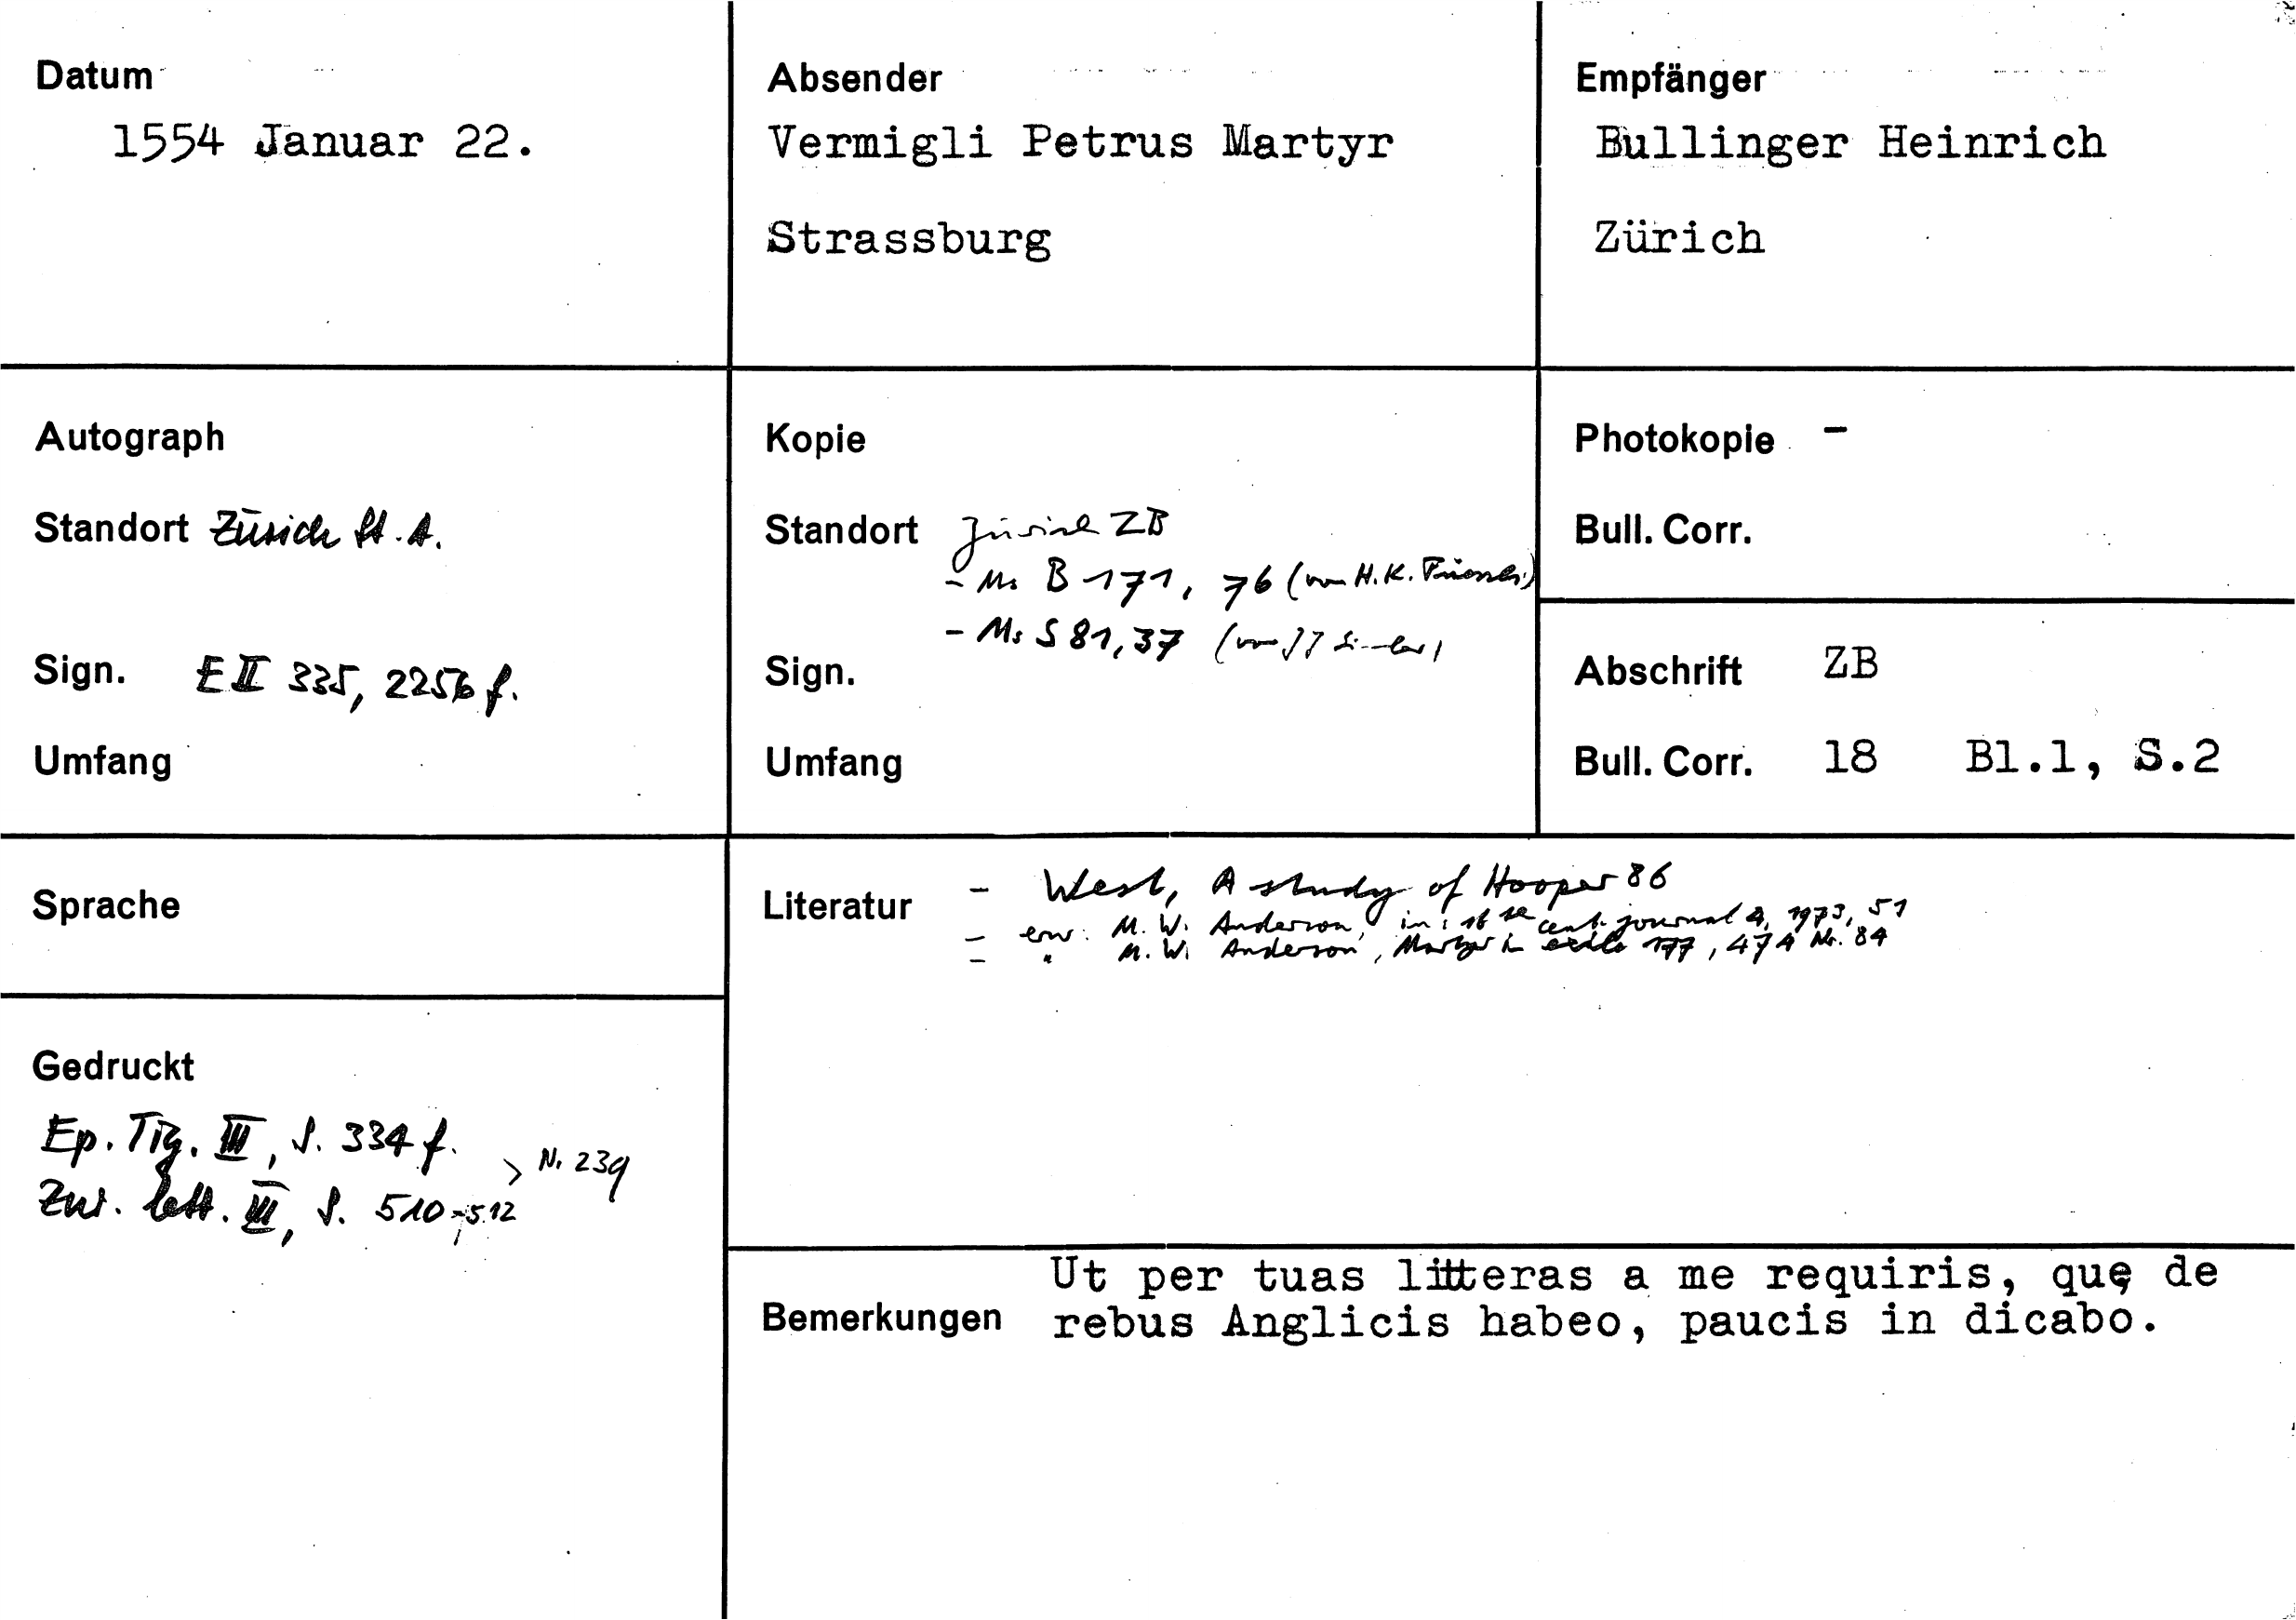 Datum
1554 Januar 22.
Absender
Vermigli Petrus Martyr
Strassburg
Empfänger
Bullinger Heinrich
Zürich
Autograph
Standort Zürich St. A.
Sign. E II 335, 2256 f.
Umfang
Kopie
Standort Zürich ZB
- Ms B 171, 76 (von H.K. Füssli)
- Ms S 81, 37 (von JJ Simler)
Sign.
Umfang
Photokopie -
Bull. Corr.
Abschrift ZB
Bull. Corr. 18 Bl.1, S.2
Sprache
Literatur - West, A study of Hooper 86
- erw. M. W. Anderson, in: 16 cent. journal 4, 1973, 51
- " M. W. Anderson, Martyr in exile 177, 474 Nr. 84
Gedruckt
Ep. Tig. III, S. 334 f.
Zur. lett. III, S. 510-512
> Nr 239
Bemerkungen
Ut per tuas litteras a me requiris, quę de
rebus Anglicis habeo, paucis in dicabo.